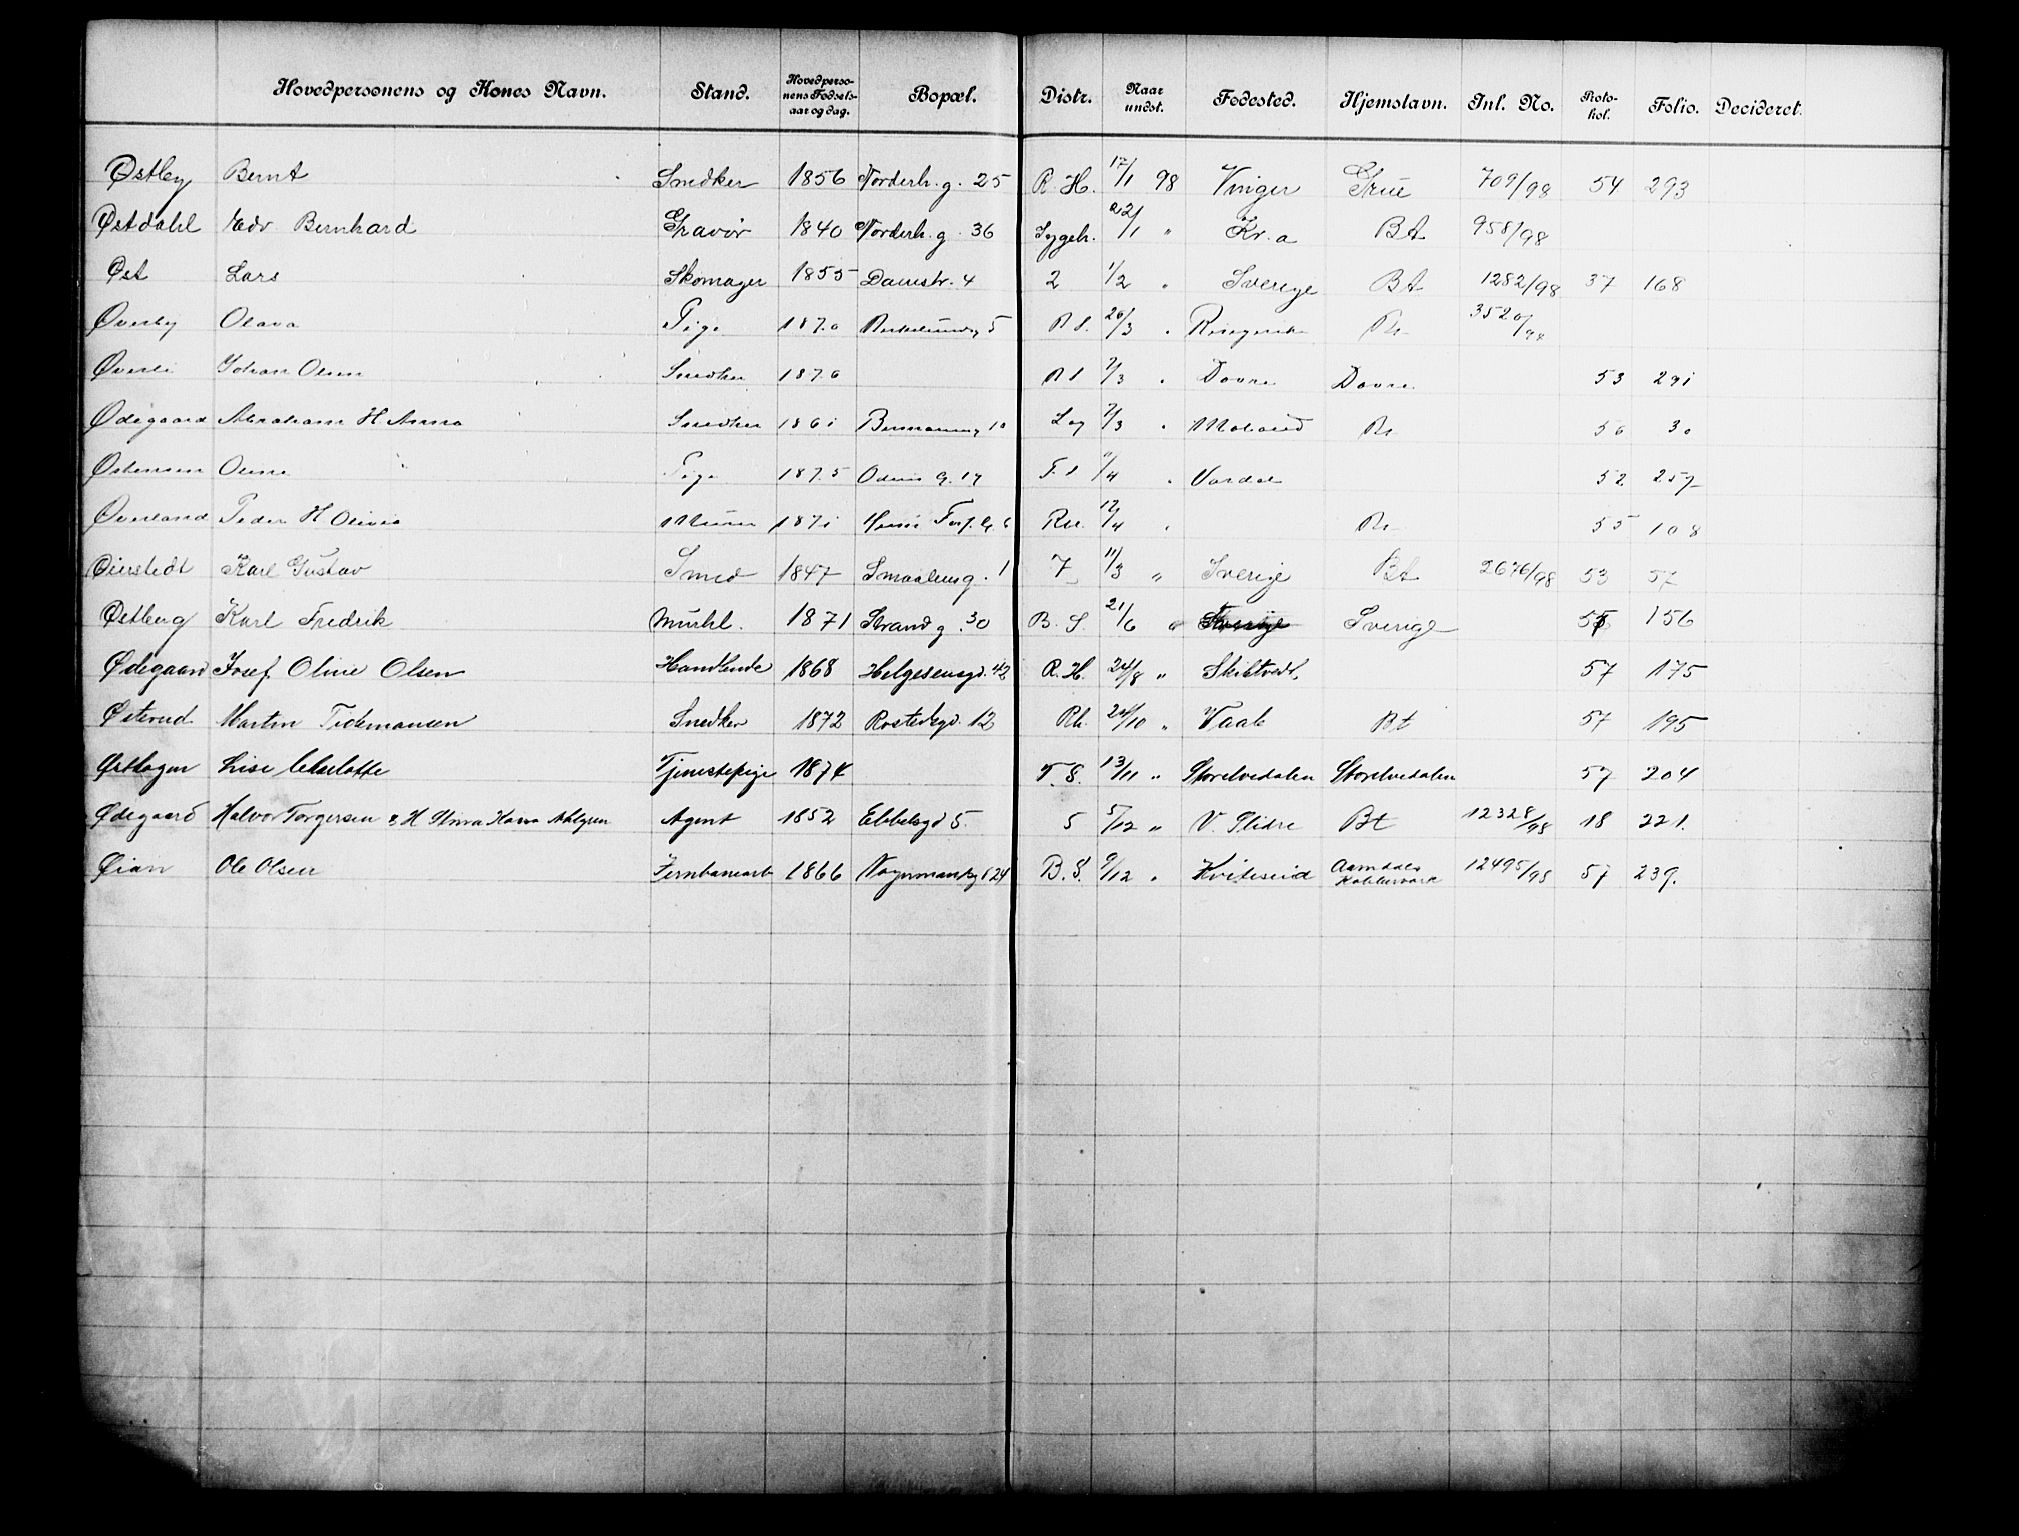 Hovedpersonens og Kones Navn. Stand. Hovedperso-nens Fødsels-aar og dag. Bopæl. Distr. Naar undst. Fødested. Hjemstavn. Inl. No. Proto-kol. Folio. Decideret.
Østby Bernt Snedker 1856 Norderh.g. 25 R.H. 17/1 98 Vinger Grue 709/98 54 293
Østdahl Edv Bernhard Gravør 1840 Norderh.g. 36 Sygeh. 22/1 " Kr.a Bt 958/98
Øst Lars Skomager 1855 Damstr. 4 2 1/2 " Sverige Bt 1282/98 37 168
Øverby Olava Pige 1870 5 26/3 "
Øverli Johan Olsen Snedker 1870 7/3 " Dovre Dovre 53 291
Ødegaard Abrahan H Anna Snedker 1861 10 7/3 " 56 30
Østensen Oline Pige 1875 Odins g. 17 " Vardal 52 257
Øverland Peder H Olivia Murer 1871 6 Rh. 12/4 " 55 108
Øierstedt Karl Gustav Smed 1847 Smaalensg. 1 7 11/3 " Sverige Bt 2676/98 53 57
Østberg Karl Fredrik Murhl. 1871 Strand g. 30 B.S. 21/6 " Sverige Sverige 156
Ødegaard Josef Oline Olsen Handlende 1868 Helgesensgd. 42 R.H. 24/8 " Skibtvedt. 57 175
Østerud Martin Tidemansen Snedker 1872 Rostedsgd. 12 Rh. 24/10 " Vaale Bt 57 195
Østhagen Lise Tjenestepige 1874 T.S. 13/11 " Storelvedalen Storelvedalen 57 204
Ødegaard Halvor Torgersen & H Stina Ahlgren Agent 1852 Ebbelsgd 5. 5 5/12 " V. Slidre Bt 12328/98 18 221.
Øian Ole Olsen Jernbanearb 1866 24 B.S. 9/12 " Kviteseid Aamdals Kobberværk 12495/98 57 239.